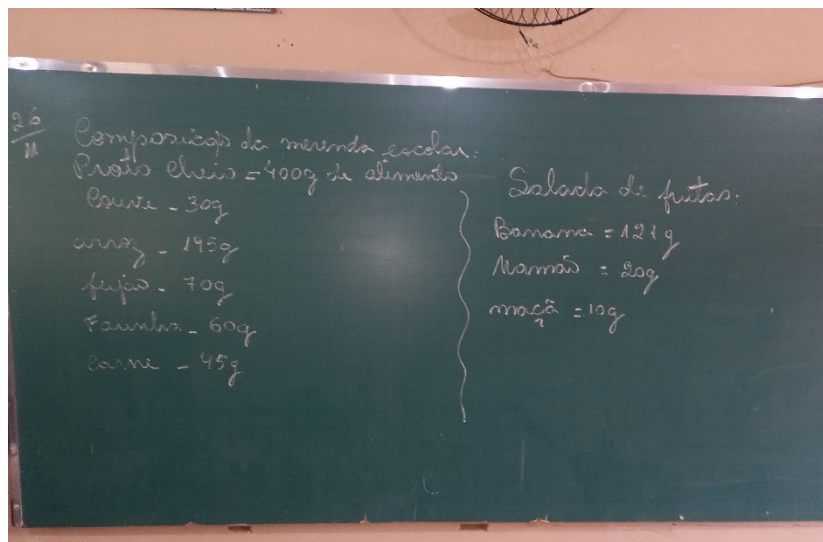 26/11
Composição da merenda escolar:
Prato cheio = 400g de alimento
Couve - 30g
arroz - 195g
feijão - 70g
Farinha - 60g
Carne - 45g
Salada de frutas:
Banana = 121g
Mamão = 20g
maçã = 10g